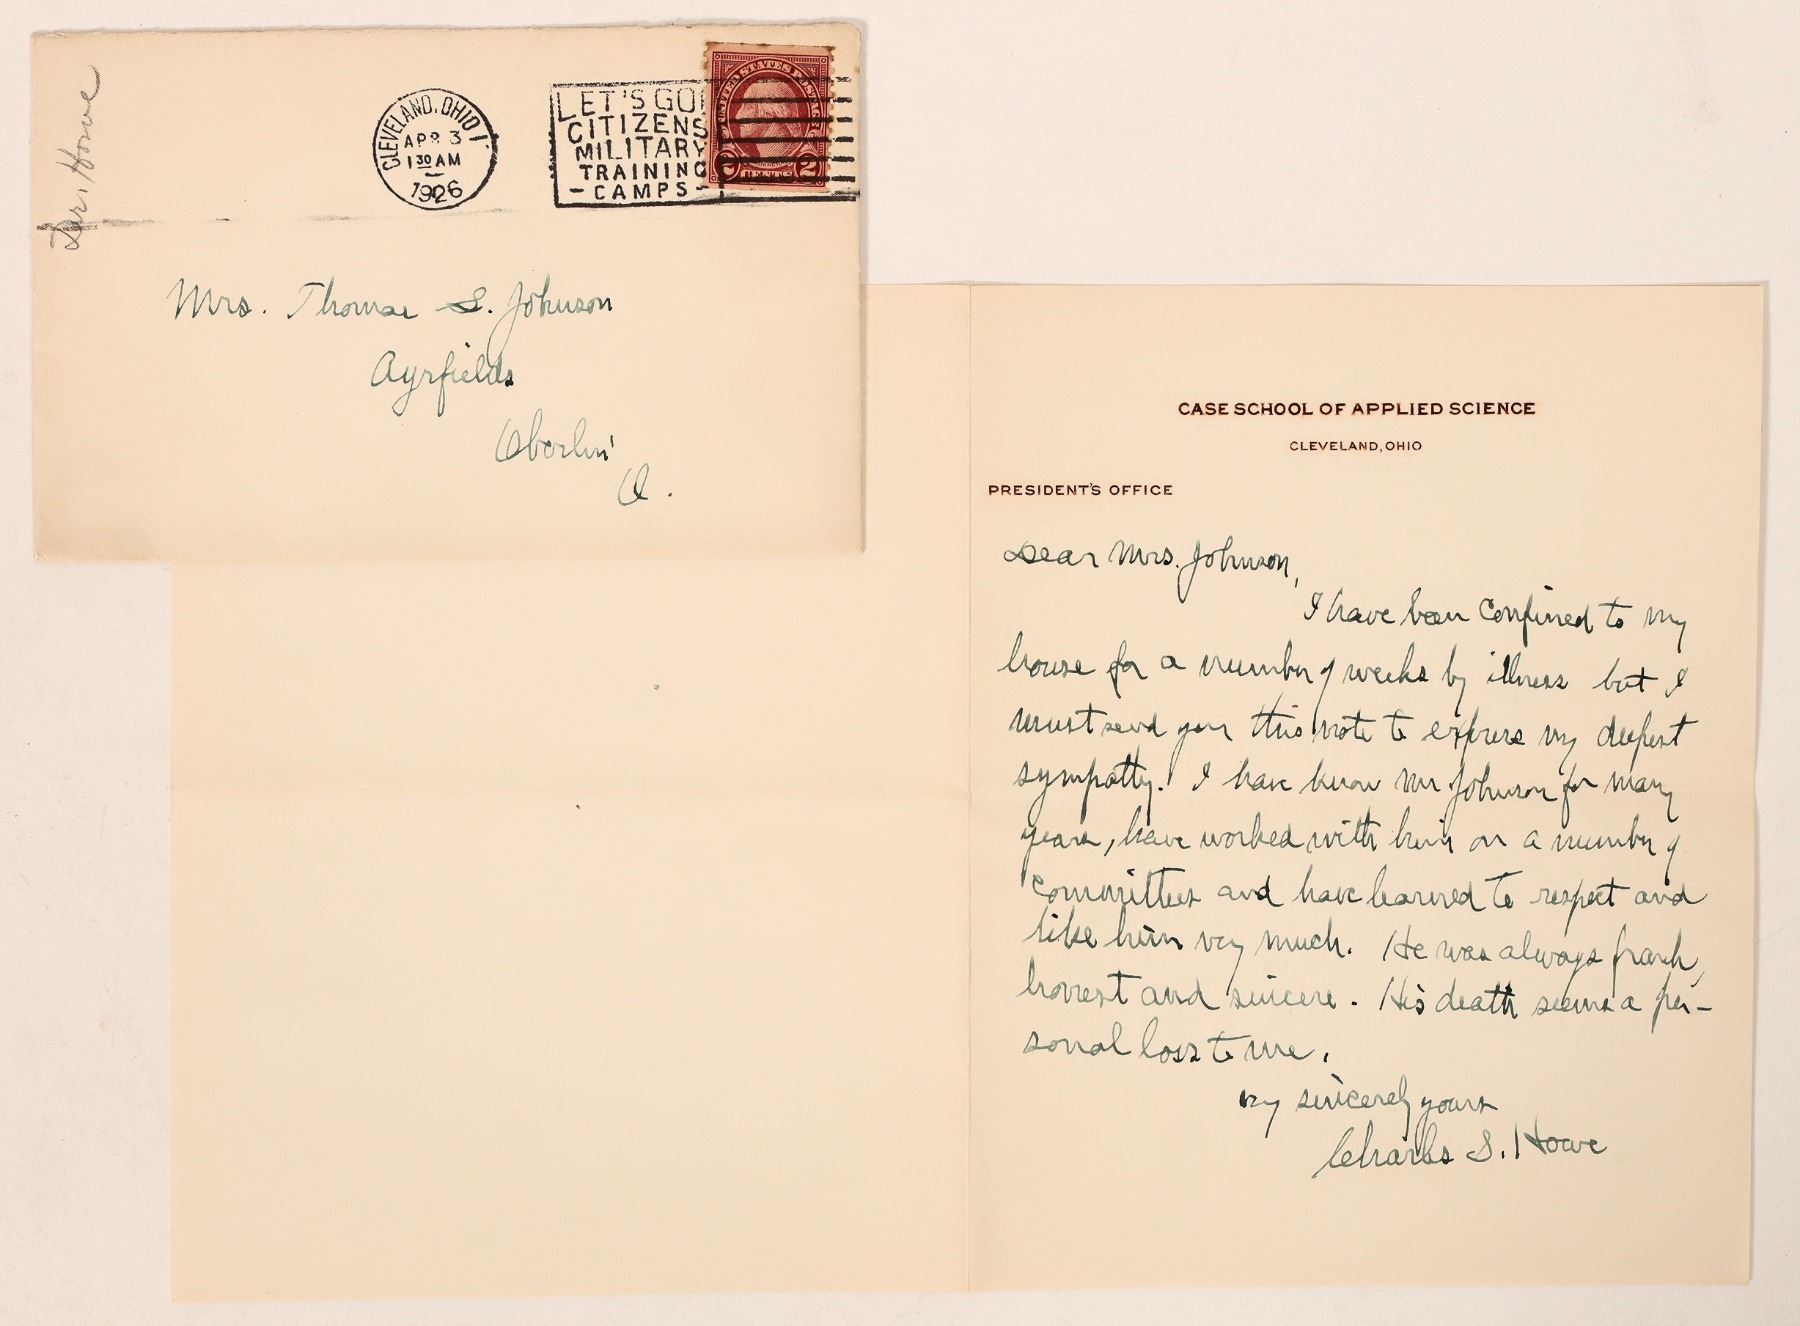 CLEVELAND, OHIO 1
APR 3
1 30 AM
1926
LET'S GO!
CITIZENS
MILITARY
TRAINING
- CAMPS -
UNITED STATES POSTAGE
2 2
Howe
Mrs. Thomas S. Johnson
Ayrfields
Oberlin
O.
CASE SCHOOL OF APPLIED SCIENCE
CLEVELAND, OHIO
PRESIDENT'S OFFICE
Dear Mrs. Johnson,
I have been confined to my
house for a number of weeks by illness but I
must send you this note to express my deepest
sympathy. I have know Mr Johnson for many
years, have worked with him on a number of
committees and have learned to respect and
like him very much. He was always frank,
honest and sincere. His death seems a per-
sonal loss to me.
Very sincerely yours
Charles S. Howe